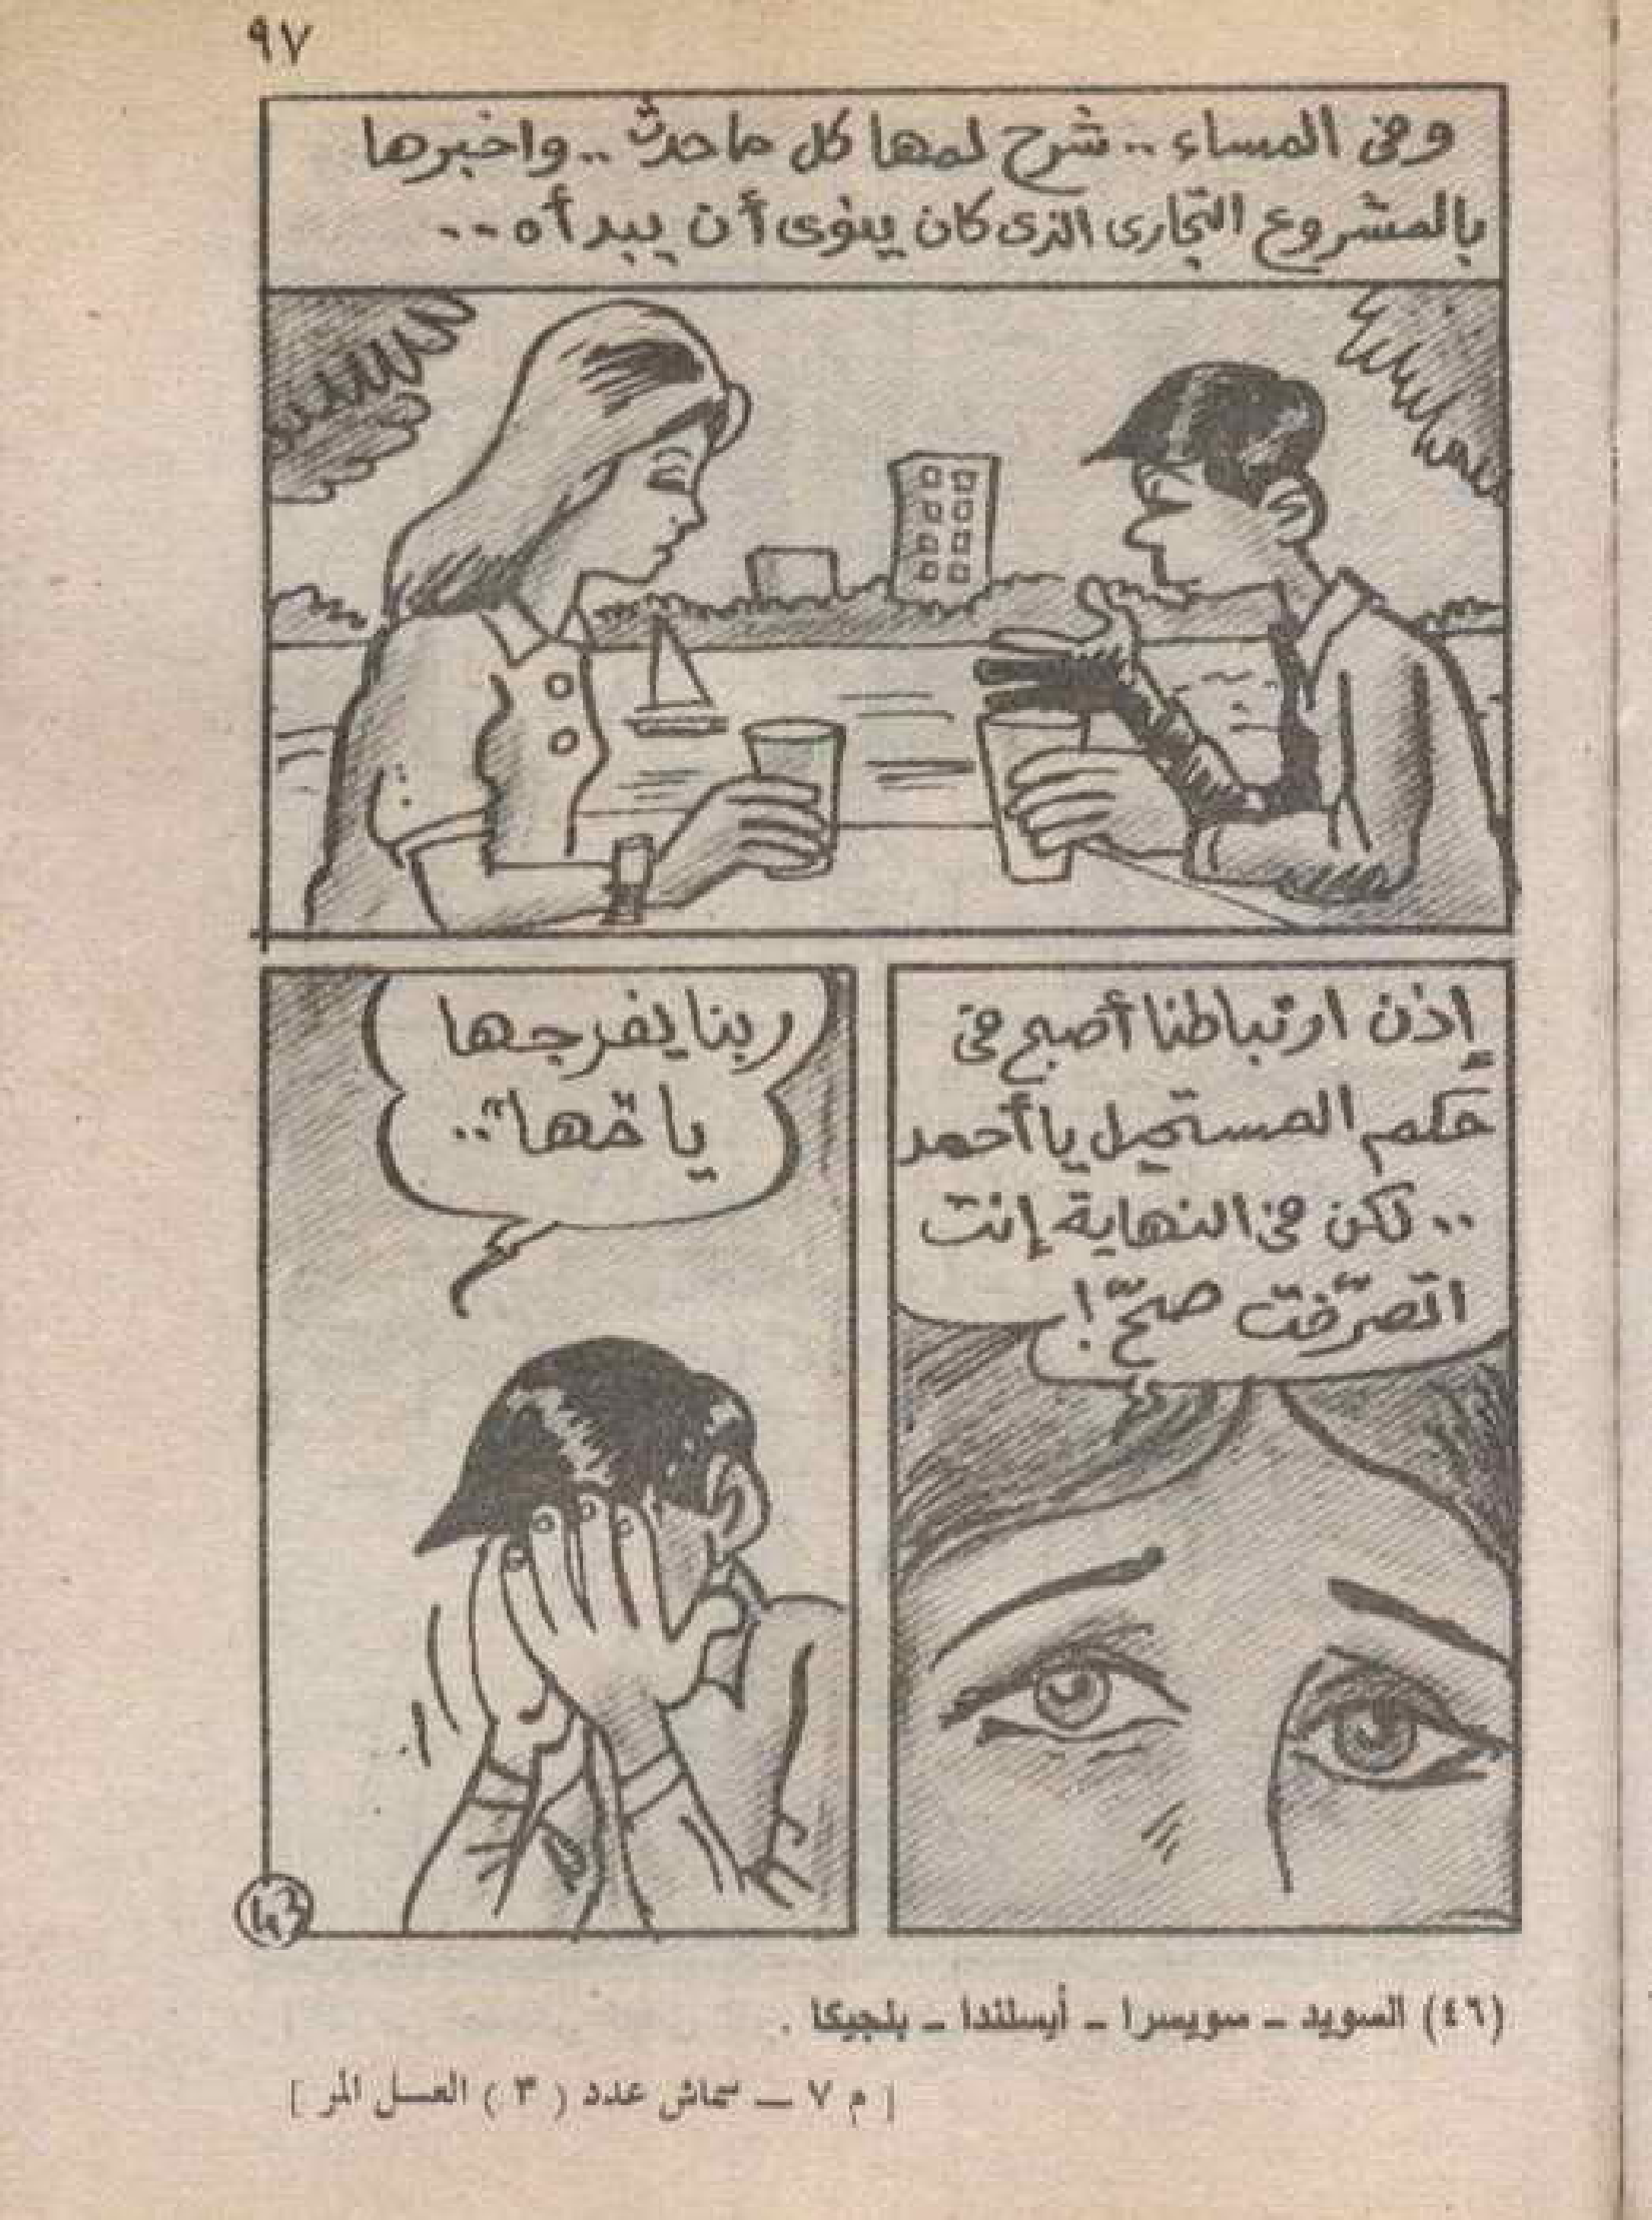 ٩٧
وفى المساء .. شرح لمها كل ما حدث .. واخبرها
بالمشروع التجارى الذى كان ينوى أن يبدأه ..
إذن ارتباطنا أصبح فى
حكم المستحيل يا أحمد
.. لكن فى النهاية إنت
اتصرّفت صحّ !
ربنا يفرجها
يا مها ..
43
(٤٦) السويد – سويسرا – أيسلندا – بلجيكا .
[ م ٧ – سماش عدد ( ٣ ) العسل المر ]